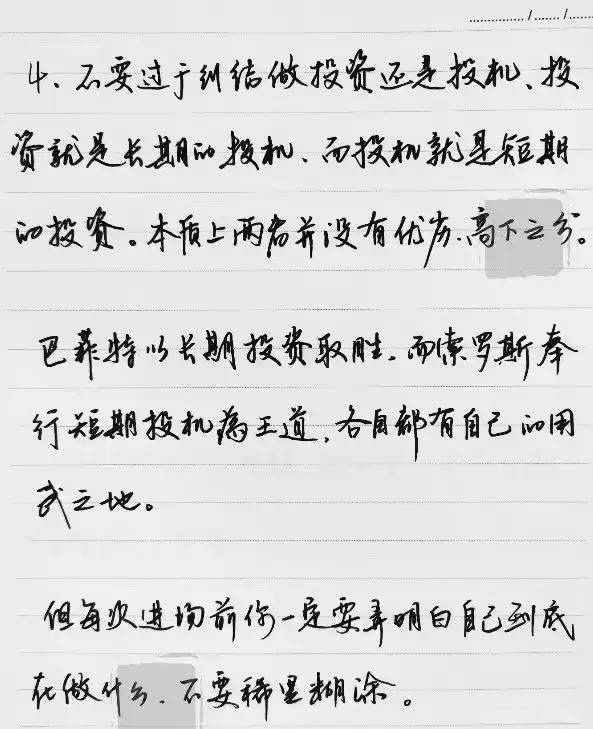 4、不要过于纠结做投资还是投机、投
资就是长期的投机、而投机就是短期
的投资。本质上两者并没有优劣、高下之分。
巴菲特以长期投资取胜、而索罗斯奉
行短期投机为王道，各自都有自己的用
武之地。
但每次进场前你一定要弄明白自己到底
在做什么、不要稀里糊涂。